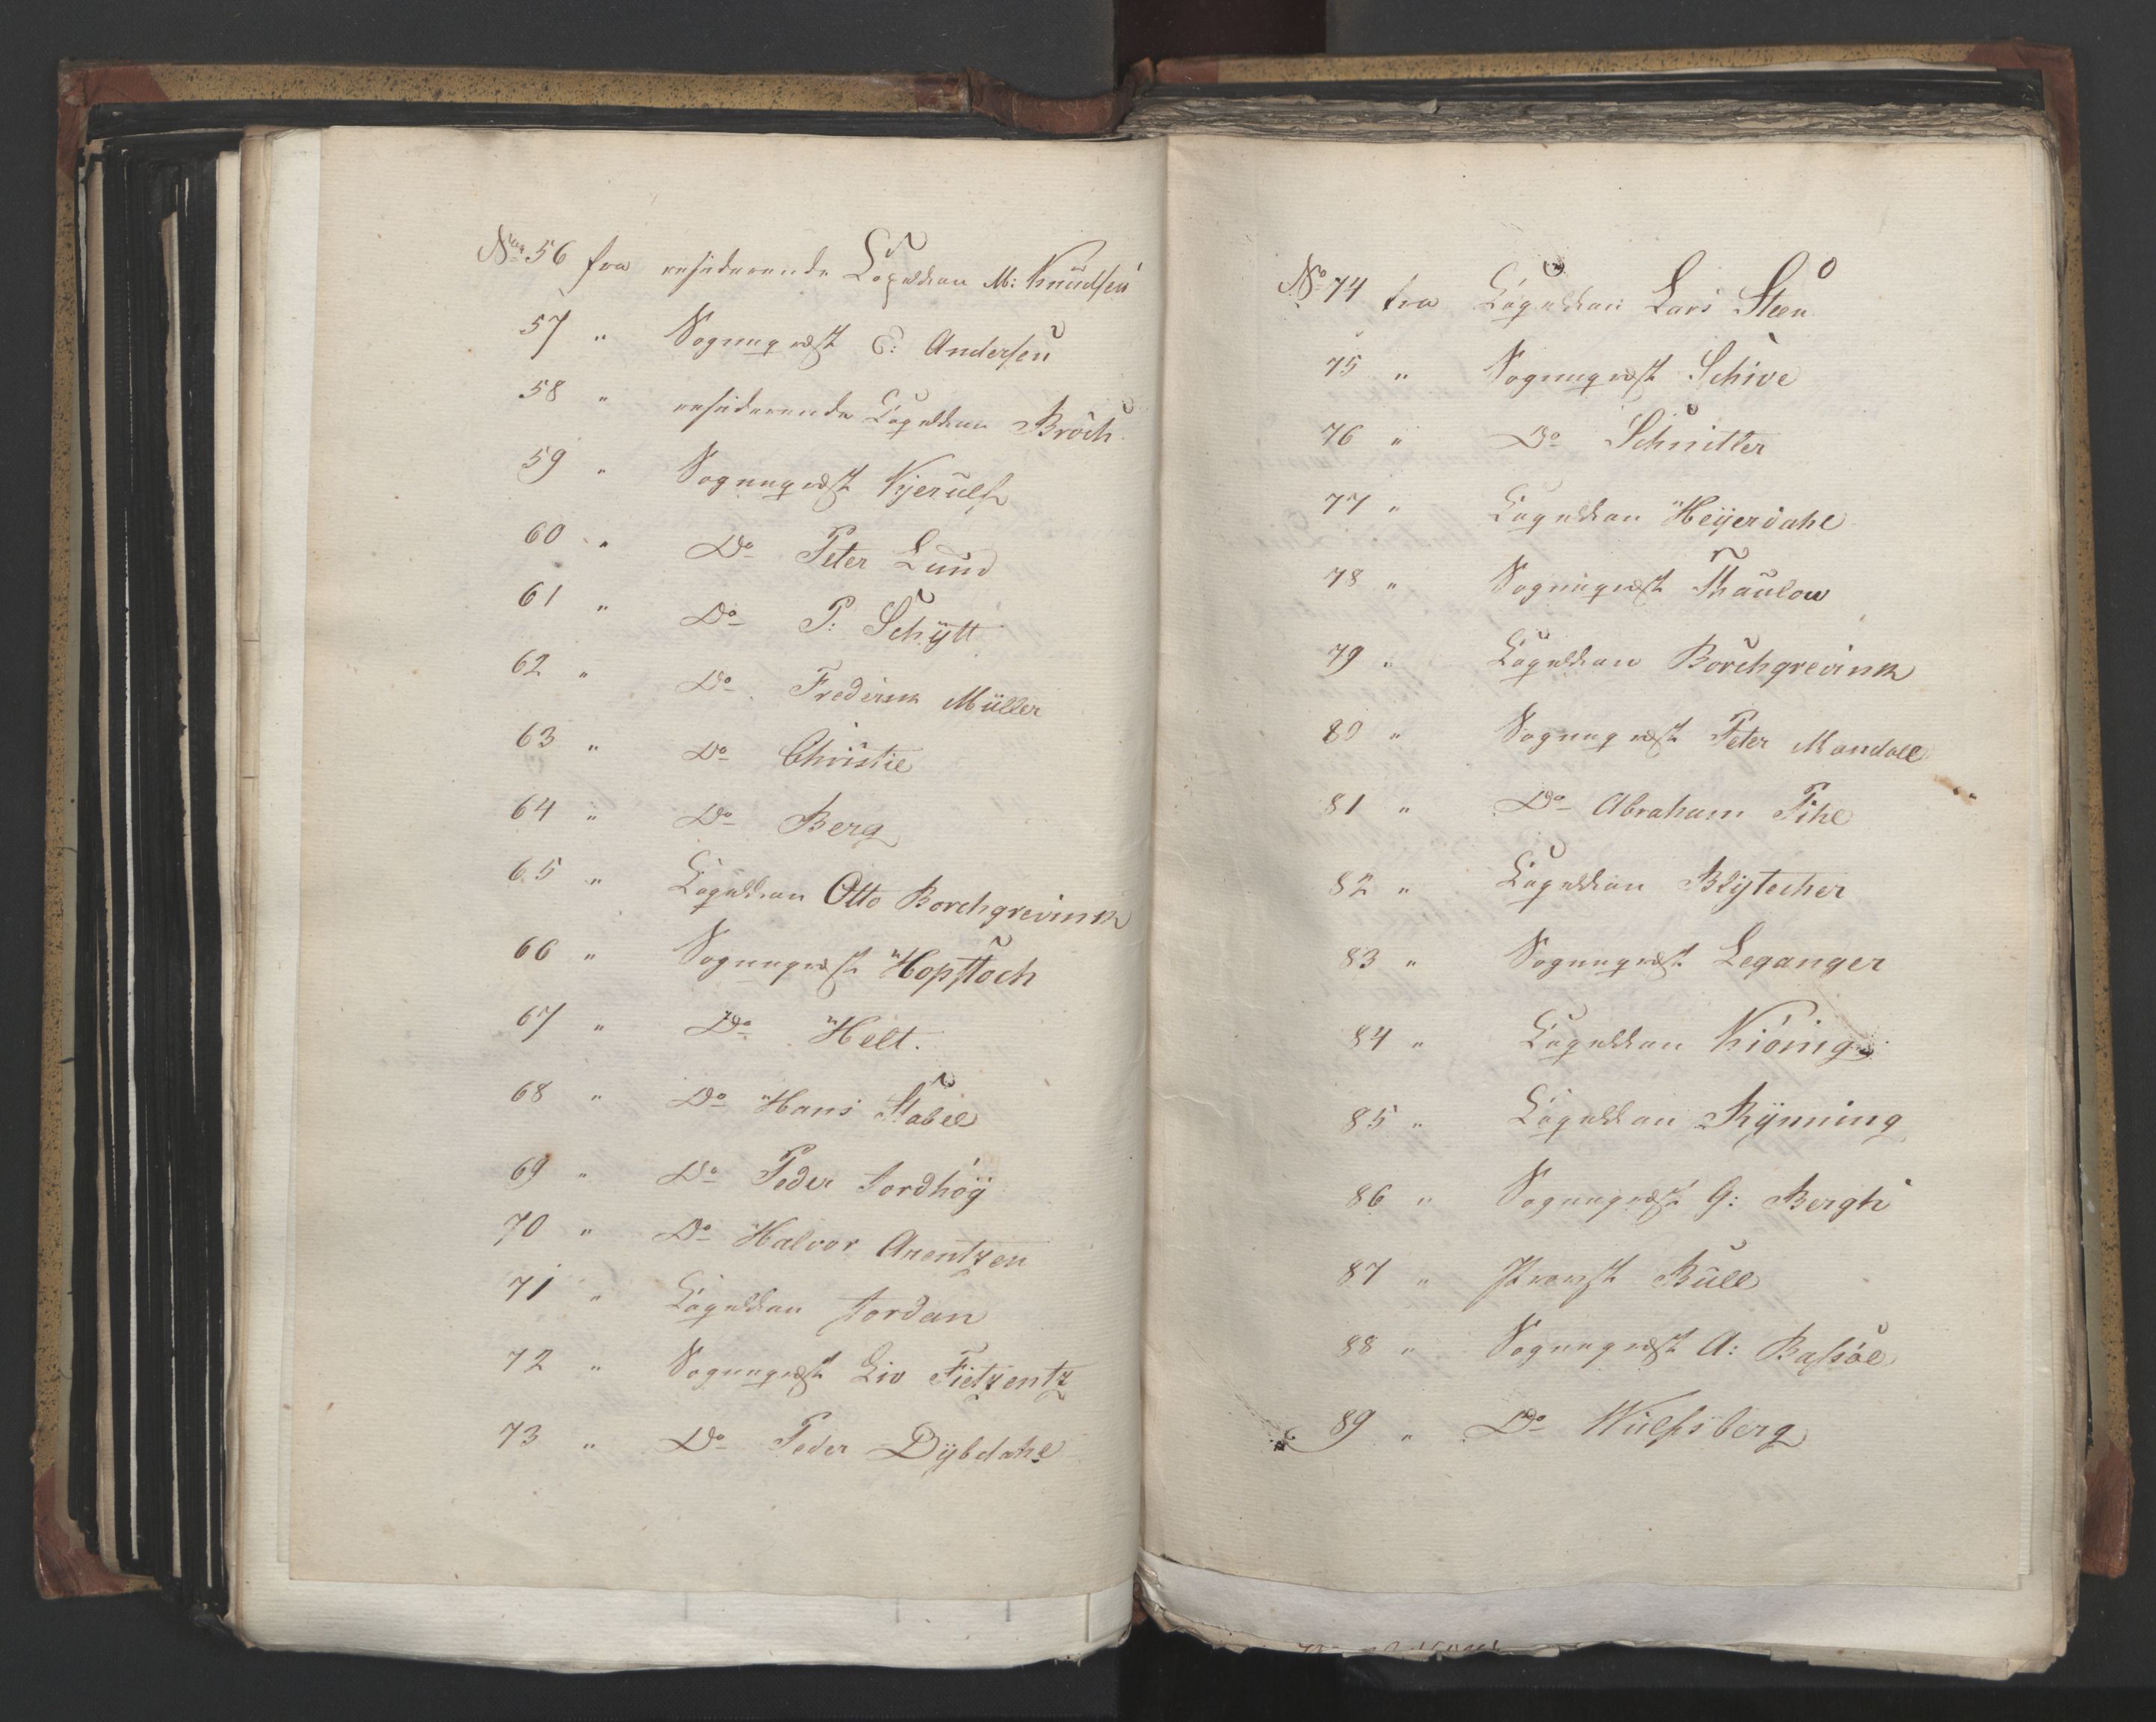 No 56 fra residerende Capellan M: Knudsen
57 " Sogneprest E: Andersen
58 " residerende Capellan Broch
59 " Sogneprest Kjerulf
60 " Do Peter Lund
61 " Do P: Schytt
62 " Do Frederik Müller
63 " Do Christie
64 " Do Berg
65 " Capellan Otto Borchgrevink
66 " Sogneprest Hopstock
67 " Do Helt.
68 " Do Hans Stabel
69 " Do Peder Jordhøy
70 " Do Halvor Arentzen
71 " Capellan Jordan
72 " Sogneprest Fietzentz
73 " Do Peder Dybdahl
No 74 fra Capellan Lars Steen
75 " Sogneprest Schive
76 " Do Schnitler
77 " Capellan Heyerdahl
78 " Sogneprest Thaulow
79 " Capellan Borchgrevink
80 " Sogneprest Peter Mandall
81 " Do Abraham Pihl
82 " Capellan Blytecher
83 " Sogneprest Leganger
84 " Capellan Kiönig
85 " Capellan Rynning
86 " Sogneprest G: Bergh
87 " Provst Bull
88 " Sogneprest A: Bassøe
89 " Do Wulfsberg